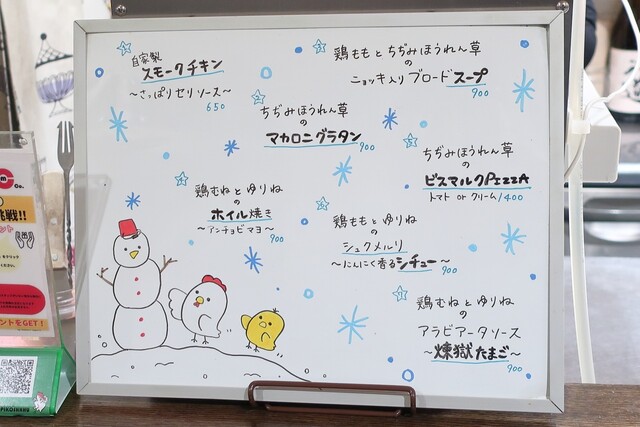 自家製
スモークチキン
～さっぱりセリソース～
650
ちぢみほうれん草
の
マカロニグラタン
900
鶏むねとゆりね
の
ホイル焼き
～アンチョビマヨ～
900
鶏ももとちぢみほうれん草
の
ニョッキ入りブロードスープ
900
ちぢみほうれん草
の
ビスマルクPIZZA
トマト or クリーム/1400
鶏ももとゆりね
の
シュクメルリ
～にんにく香るシチュー～
900
鶏むねとゆりね
の
アラビアータソース
～煉獄たまご～
900
Co.
挑戦!!
ントをGET!